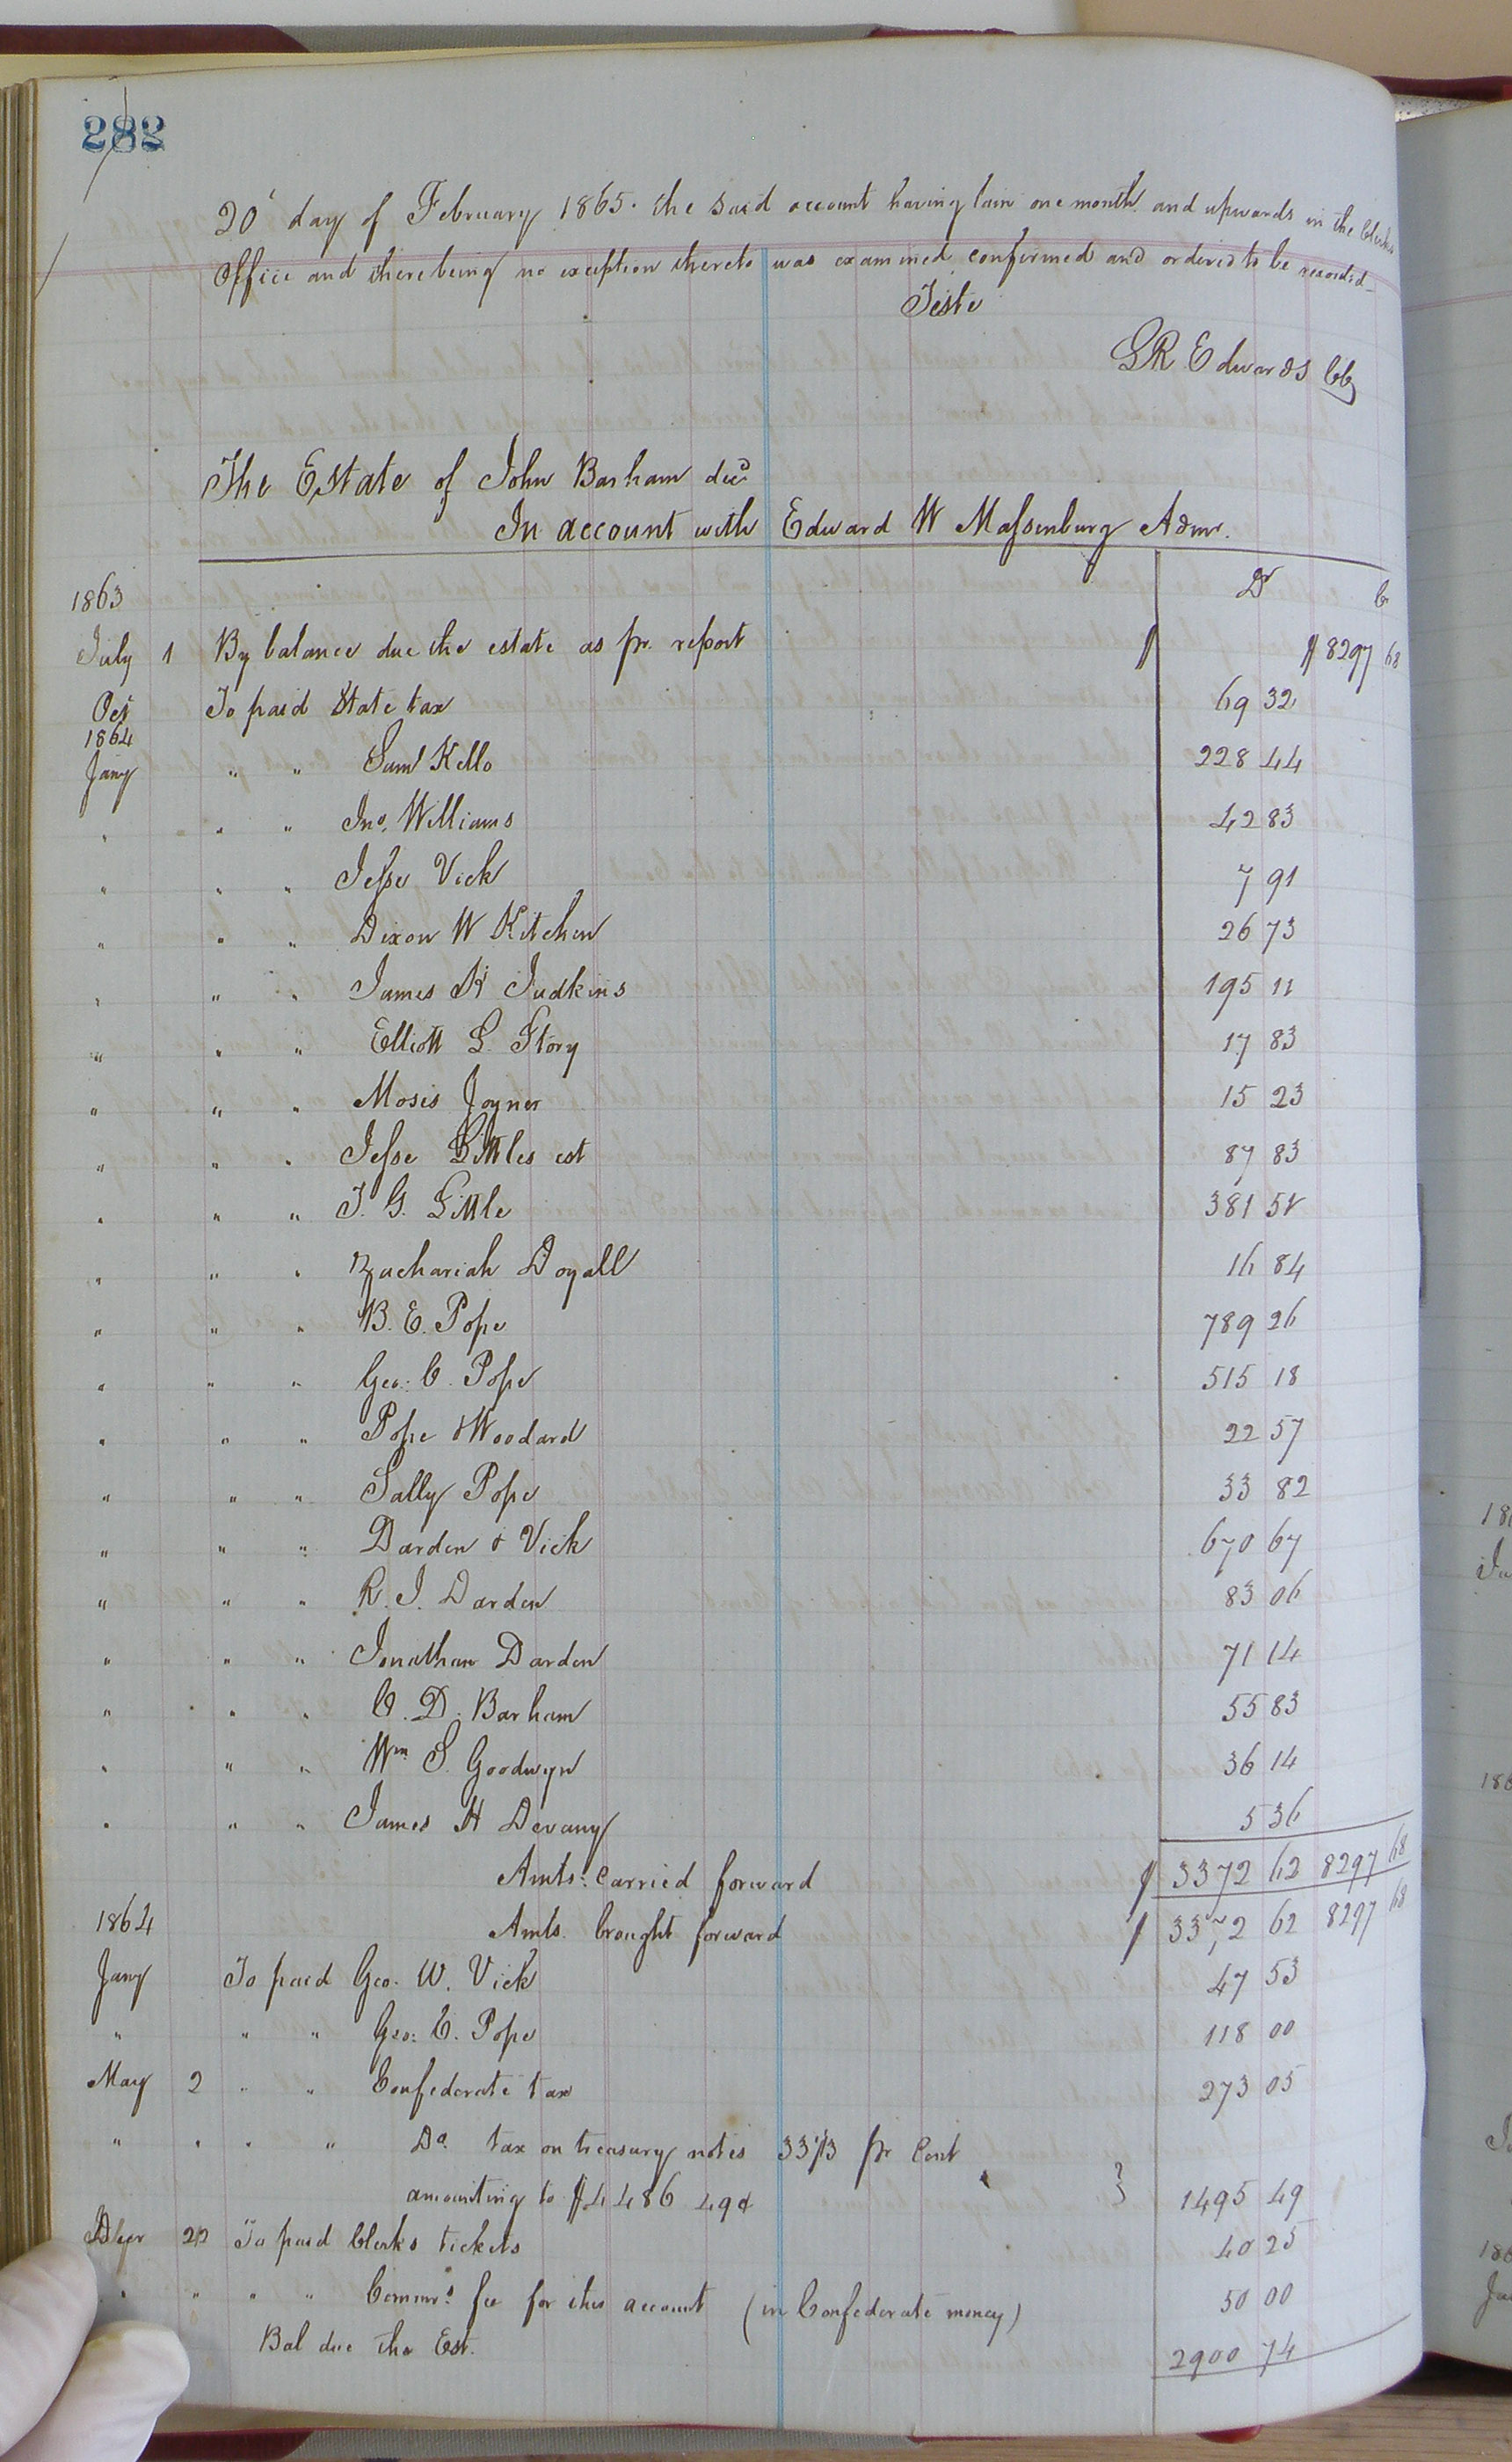 282
20' day of February 1865. the said account having lain one month and upwards in the Clerks
Office and there being no exception thereto was examined confirmed and ordered to be recorded
Teste
LR Edwards CC
The Estate of John Barham decd
In account with Edward W Massenburg Admr.
1863 Dr Cr
July 1 By balance due the estate as pr. report $ $ 8297 68
Oct To paid State tax 69 32
1864
Jany " " Saml Kello 228 44
" " " Jno. Williams 42 83
" " " Jesse Vick 7 91
" " " Dixon W Kitchen 26 73
" " " James K Judkins 195 11
" " " Elliott L. Story 17 83
" " " Moses Joyner 15 23
" " " Jesse Littles est 87 83
" " " J. G. Little 381 52
" " " Zachariah Doyall 16 84
" " " B. E. Pope 789 26
" " " Geo: C. Pope 515 18
" " " Pope & Woodard 22 57
" " " Sally Pope 33 82
" " " Darden & Vick 670 67
" " " R. J. Darden 83 06
" " " Jonathan Darden 71 14
" " " C. D. Barham 55 83
" " " Wm S. Goodwyn 36 14
" " " James H Devany 5 36
Amts. carried forward $ 3372 62 8297 68
1864 Amts. brought forward $ 3372 62 8297 68
Jany To paid Geo. W. Vick 47 53
" " " Geo: C. Pope 118 00
May 2 " " Confederate tax 273 05
" " " " Do. tax on treasury notes 33 1/3 pr Cent
amounting to $4486 49¢ } 1495 49
Decr 22 To paid Clerks tickets 40 25
" " " " Commrs. fee for this account (in Confederate money) 50 00
Bal due the Est. 2900 74